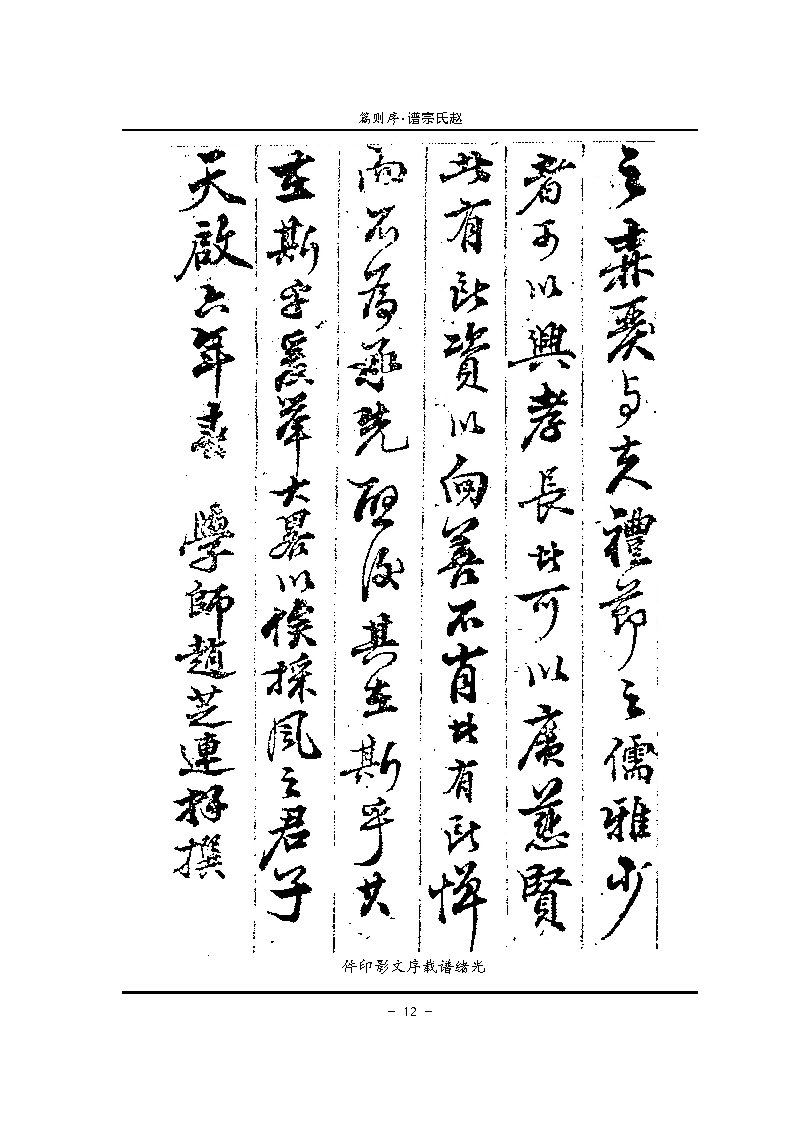 赵氏宗谱·序则篇
之与夫禮節之儒雅少
者可以興孝長者可以廣慈賢
者有所資以向善不肖者有所憚
而不為啟後其在斯乎其
在斯乎爰舉大畧以俟採風之君子
天啟六年 學師趙芝連拜撰
光绪谱载序文影印件
- 12 -